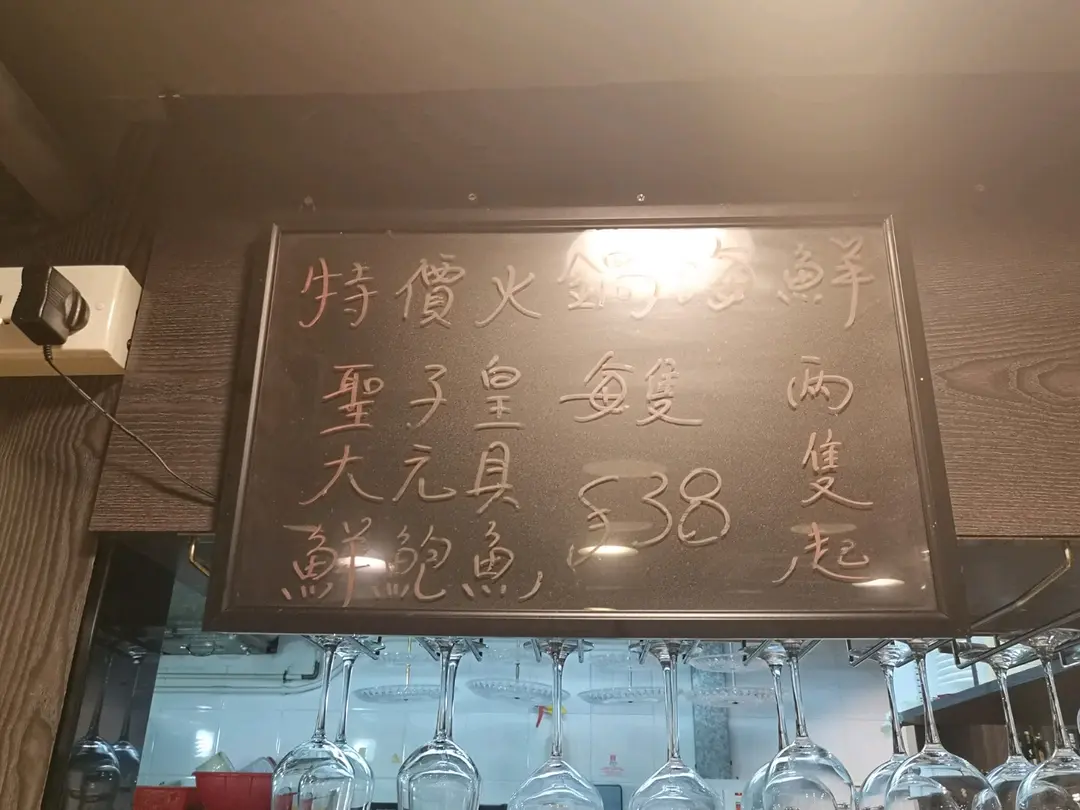 特價火鍋海鮮
聖子皇 每隻 两隻起
大元貝 $38
鮮鮑魚